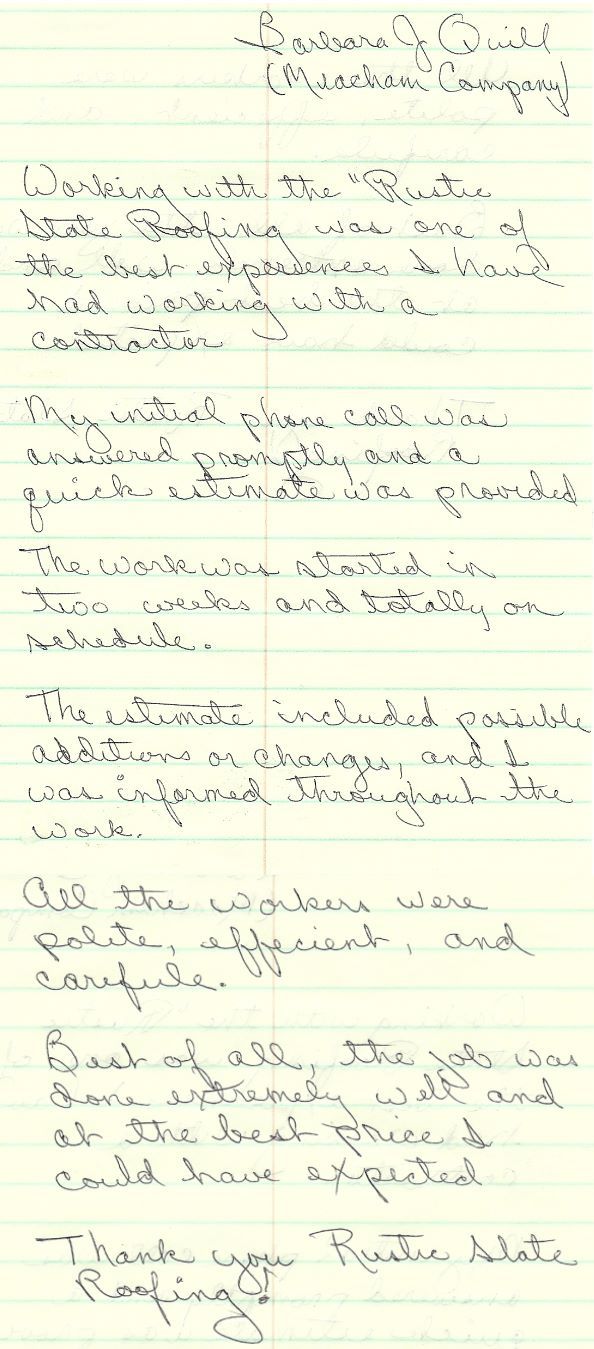 Barbara J Quill
(Meacham Company)
Working with the "Rustic
State Roofing was one of
the best experiences I have
had working with a
contractor
My initial phone call was
answered promptly and a
quick estimate was provided
The work was started in
two weeks and totally on
schedule.
The estimate included possible
additions or changes, and I
was informed throughout the
work.
All the workers were
polite, effecient, and
carefule.
Best of all, the job was
done extremely well and
at the best price I
could have expected
Thank you Rustic Slate
Roofing!